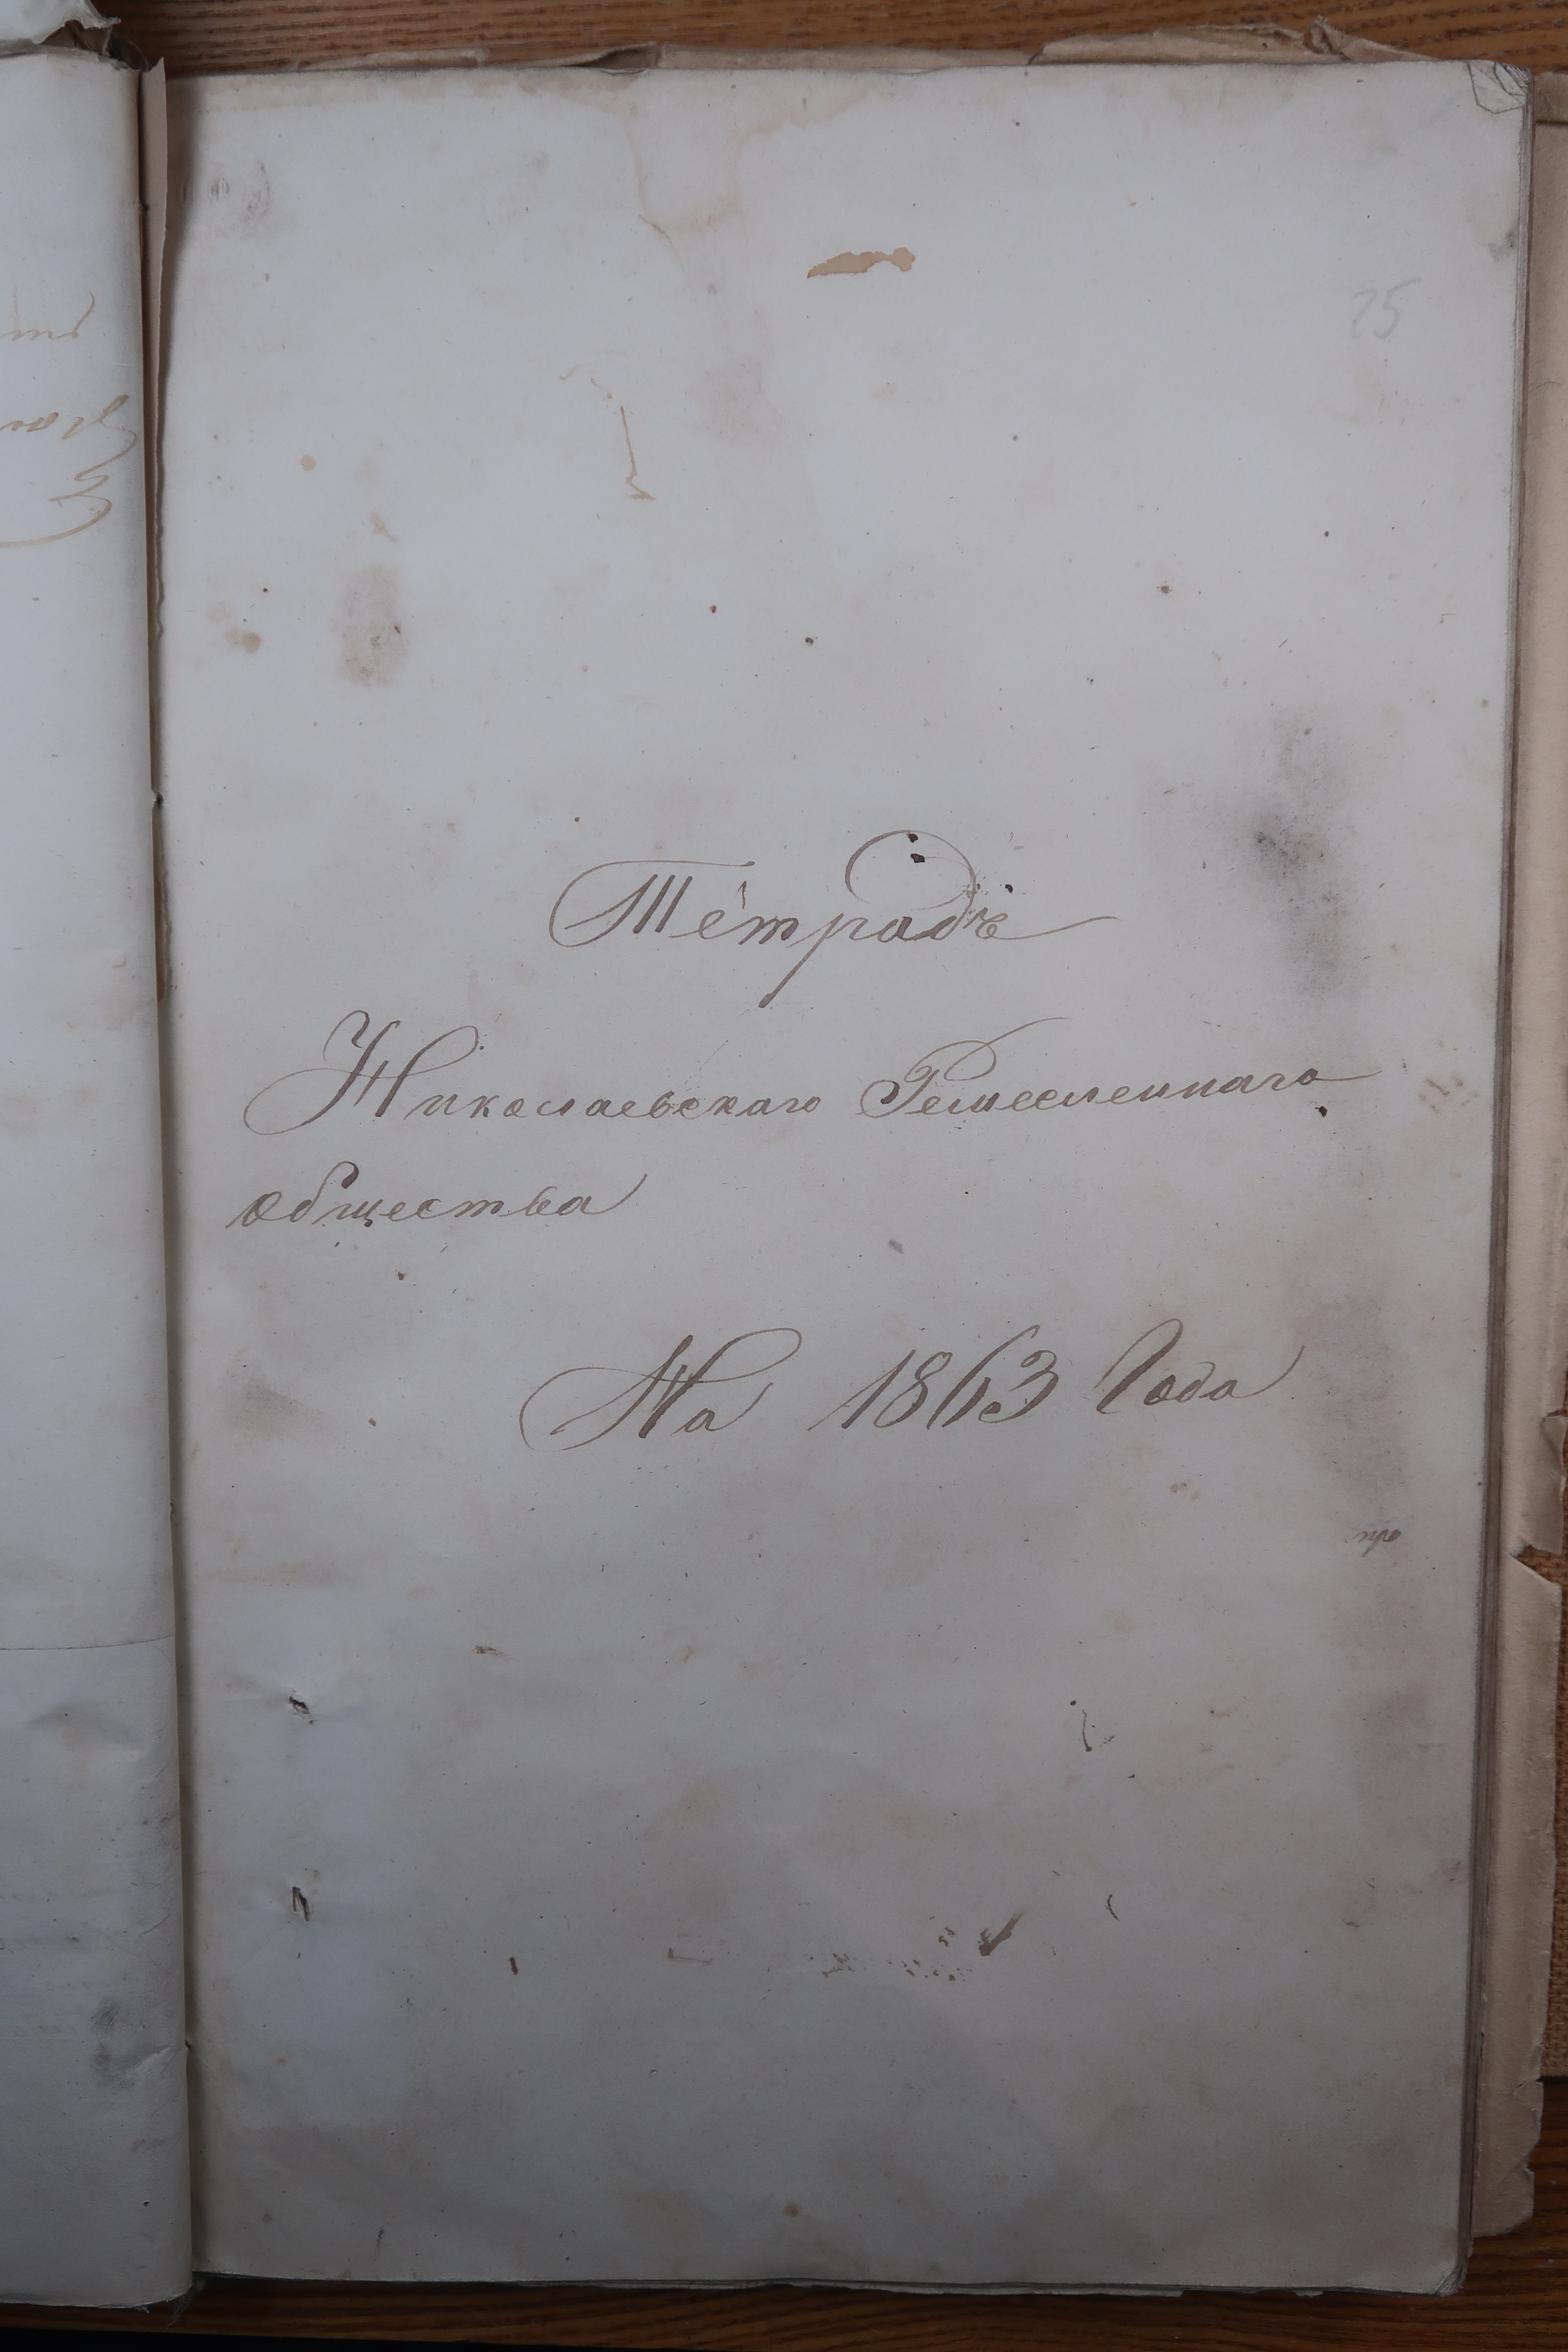 25
Тетрадь
Николаевскаго Ремесленнаго
общества
На 1863 Года
про